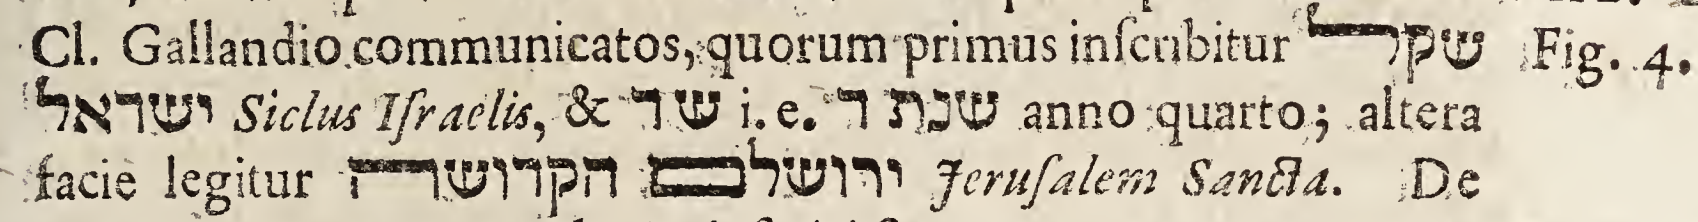 Cl. Gallandio communicatos, quorum primus inſcribitur שקל Fig. 4.
ישראל Siclus Iſraelis, & שד i. e. שנת ד anno quarto; altera
facie legitur ירושלם הקדושה Jeruſalem Sancta. De